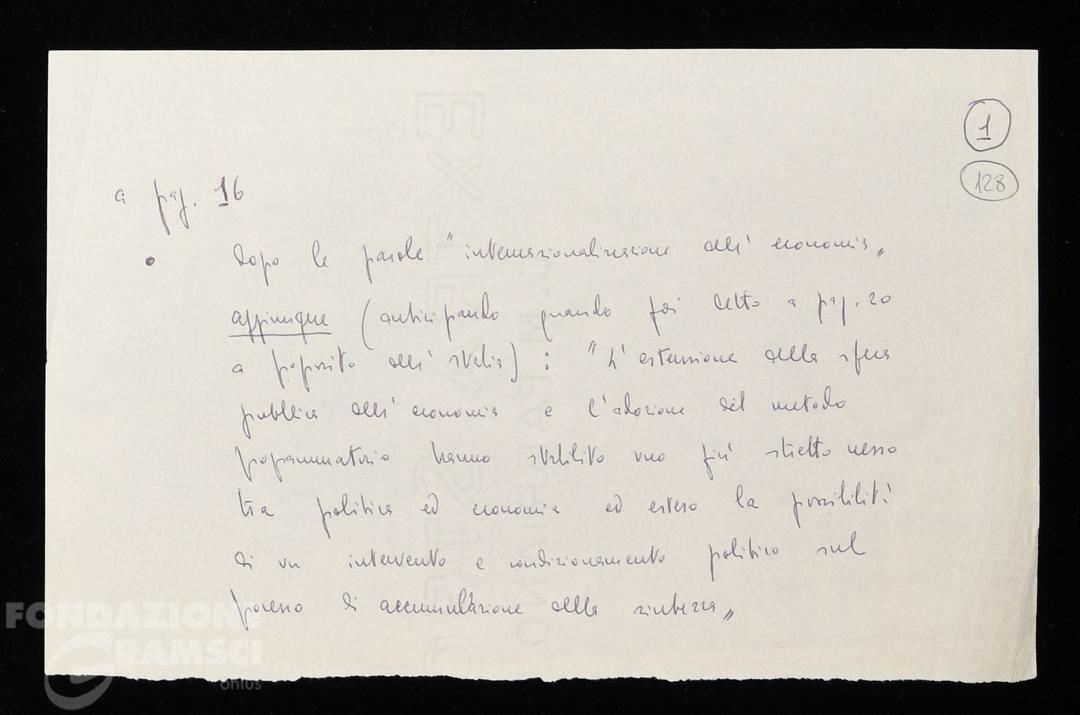 1
128
a pag. 16
• Dopo le parole "internazionalizzazione dell'economia"
aggiungere (anticipando quando poi detto a pag. 20
a proposito dell'Italia) : "L'estensione della sfera
pubblica dell'economia e l'adozione del metodo
programmatorio hanno stabilito uno più stretto nesso
tra politica ed economia ed esteso la possibilità
di un intervento e condizionamento politico sul
processo di accumulazione della ricchezza"
FONDAZIONE
GRAMSCI
onlus